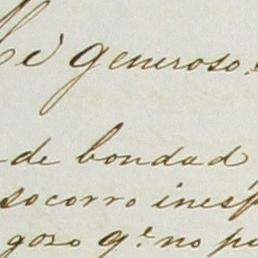 generoso
de bondad
socorro
gozo q.ᵉ no